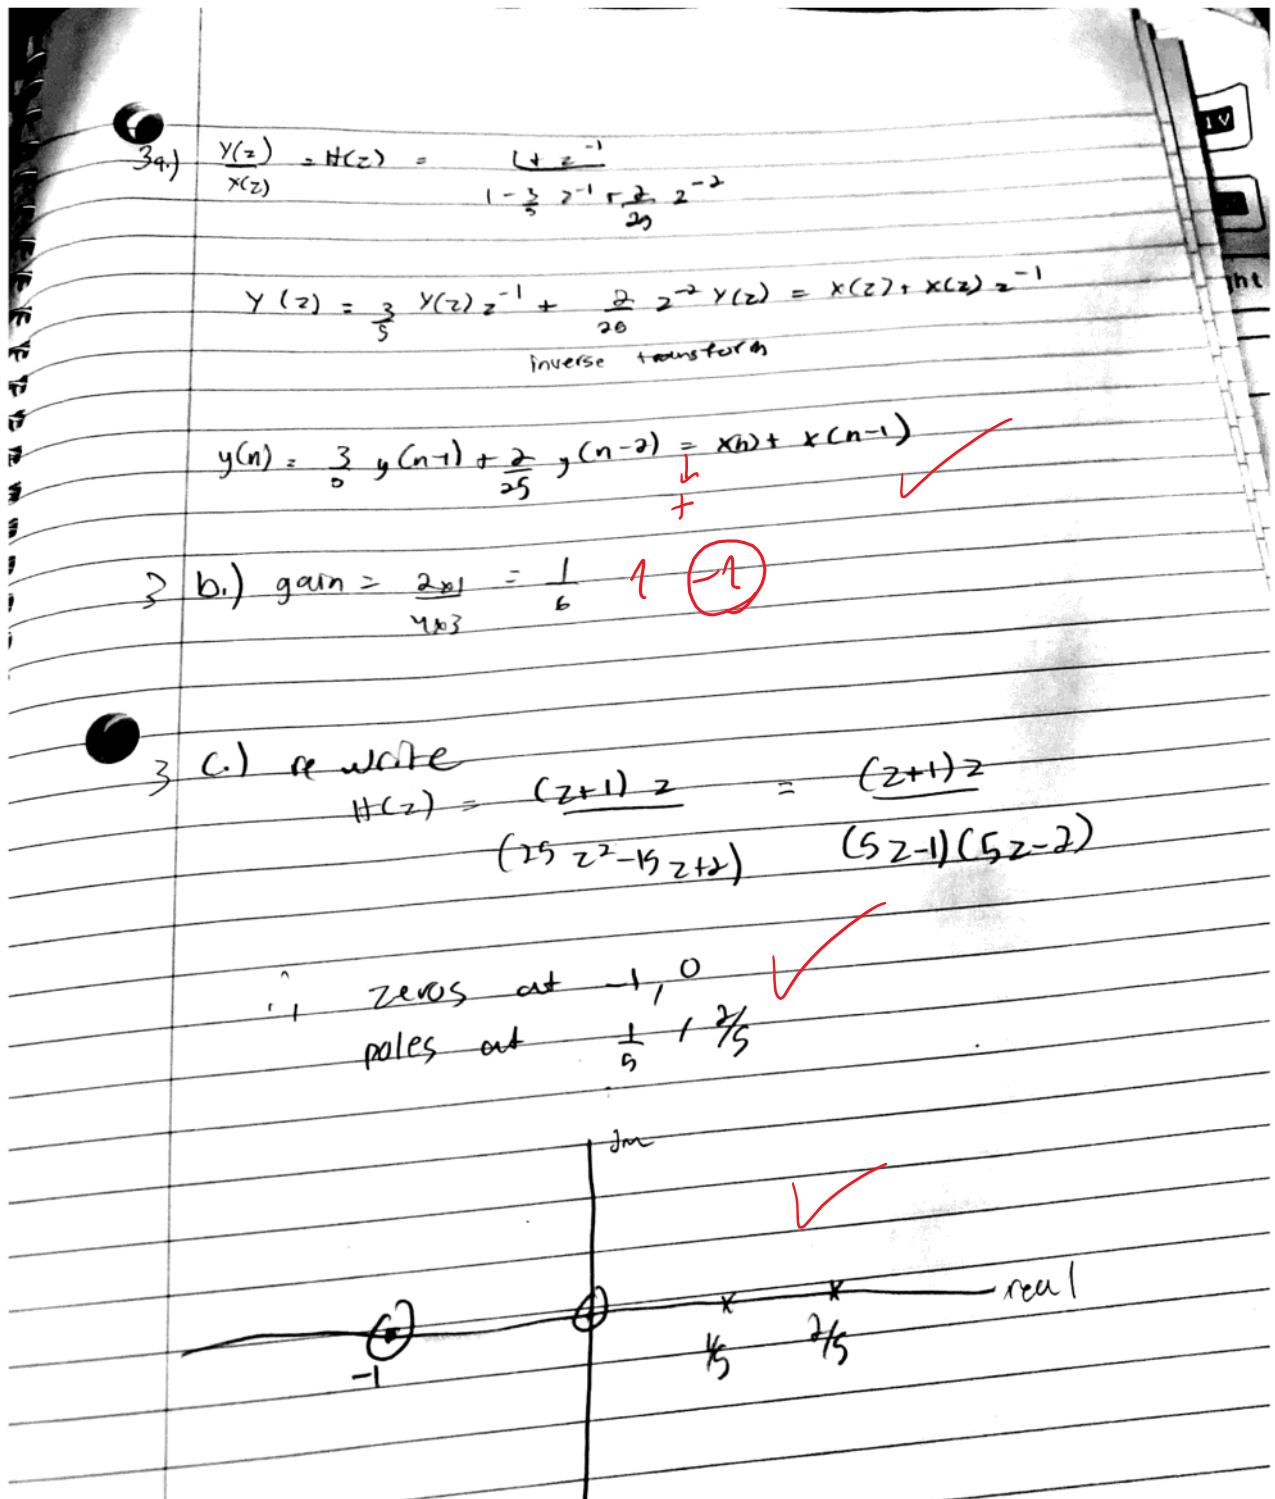 3a.) Y(z)/X(z) = H(z) = (1 + z^-1)/(1 - 3/5 z^-1 + 2/25 z^-2)
Y(z) = 3/5 Y(z) z^-1 + 2/20 z^-2 Y(z) = X(z) + X(z) z^-1
inverse transform
y(n) = 3/5 y(n-1) + 2/25 y(n-2) = x(n) + x(n-1) ✓
↓
+
3 b.) gain = 2x1/4x3 = 1/6 1 -1
3 c.) re write
H(z) = (z+1) z/(25 z² - 15 z + 2) = (z+1) z/(5z-1)(5z-2)
∴ zeros at -1, 0 ✓
poles at 1/5, 2/5
Im
✓
real
-1 1/5 2/5
1V
ht